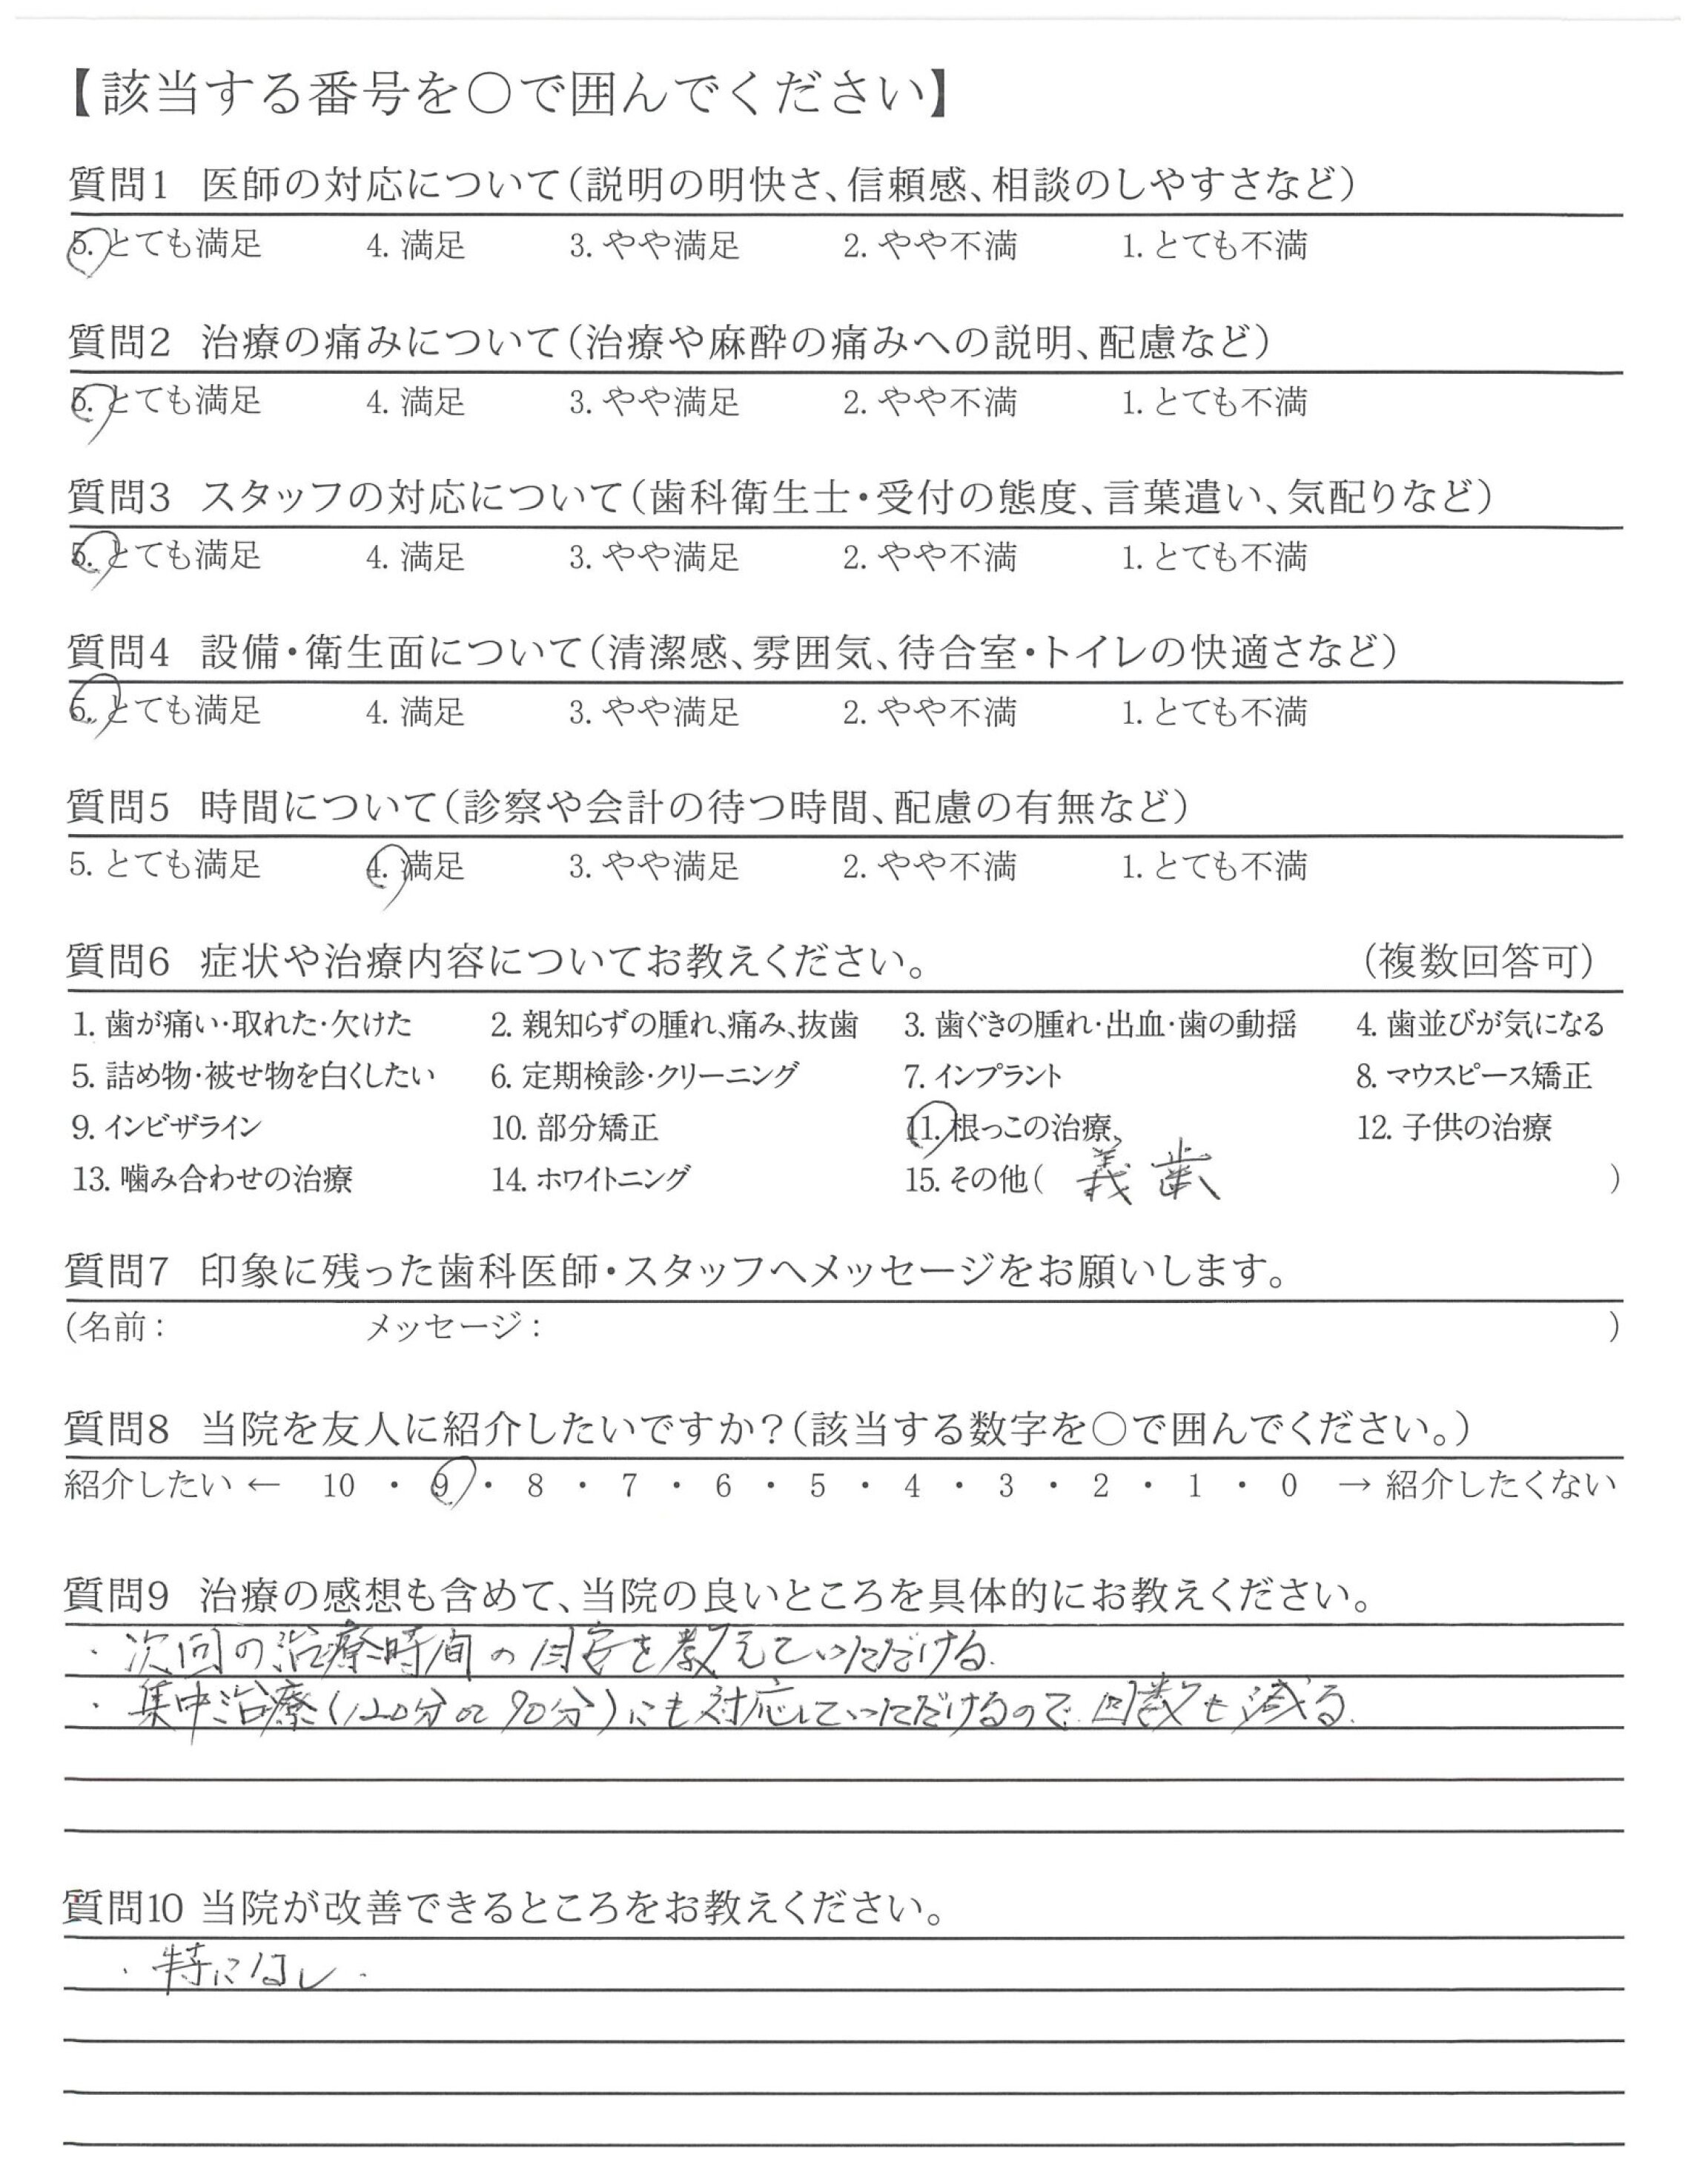 【該当する番号を○で囲んでください】
質問1 医師の対応について(説明の明快さ、信頼感、相談のしやすさなど)
5. とても満足 4. 満足 3. やや満足 2. やや不満 1. とても不満
質問2 治療の痛みについて(治療や麻酔の痛みへの説明、配慮など)
5. とても満足 4. 満足 3. やや満足 2. やや不満 1. とても不満
質問3 スタッフの対応について(歯科衛生士・受付の態度、言葉遣い、気配りなど)
5. とても満足 4. 満足 3. やや満足 2. やや不満 1. とても不満
質問4 設備・衛生面について(清潔感、雰囲気、待合室・トイレの快適さなど)
5. とても満足 4. 満足 3. やや満足 2. やや不満 1. とても不満
質問5 時間について(診察や会計の待つ時間、配慮の有無など)
5. とても満足 4. 満足 3. やや満足 2. やや不満 1. とても不満
質問6 症状や治療内容についてお教えください。 (複数回答可)
1. 歯が痛い・取れた・欠けた 2. 親知らずの腫れ、痛み、抜歯 3. 歯ぐきの腫れ・出血・歯の動揺 4. 歯並びが気になる
5. 詰め物・被せ物を白くしたい 6. 定期検診・クリーニング 7. インプラント 8. マウスピース矯正
9. インビザライン 10. 部分矯正 11. 根っこの治療、 12. 子供の治療
13. 噛み合わせの治療 14. ホワイトニング 15. その他( 義歯 )
質問7 印象に残った歯科医師・スタッフへメッセージをお願いします。
(名前: メッセージ: )
質問8 当院を友人に紹介したいですか?(該当する数字を○で囲んでください。)
紹介したい ← 10 ・ 9 ・ 8 ・ 7 ・ 6 ・ 5 ・ 4 ・ 3 ・ 2 ・ 1 ・ 0 → 紹介したくない
質問9 治療の感想も含めて、当院の良いところを具体的にお教えください。
・次回の治療時間の目安を教えていただける.
・集中治療(120分or90分)にも対応していただけるので.回数も減る.
質問10 当院が改善できるところをお教えください。
・特になし.